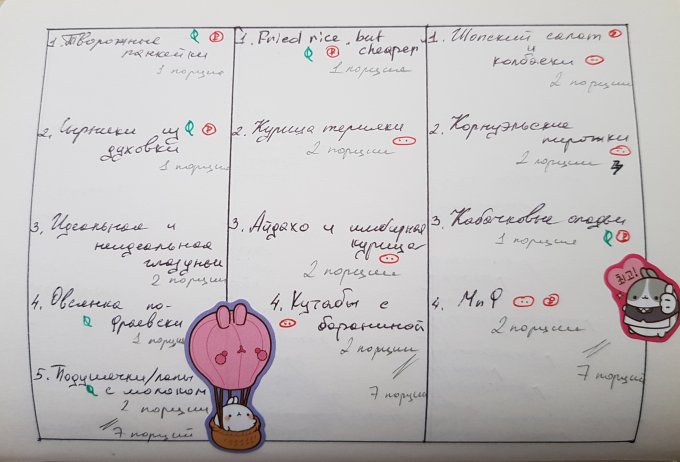 1. Творожные
панкейки
1 порция
2. Сырники из
духовки
1 порция
3. Идеальная и
неидеальная
глазунья
2 порции
4. Овсянка по-
1 порция
5. Подушечки/лапы
с молоком
2 порции
7 порций
1. Fried rice, but
cheaper
1 порция
2. Курица терияки
2 порции
3. Айдахо и имбирная
курица
2 порции
4. Кутабы с
бараниной
2 порции
7 порций
1. Шопский салат
и
колбаски
2 порции
2. Корнуэльские
пирожки
2 порции
3. Кабачковые оладьи
1 порция
4. МиФ
2 порции
7 порций
최고!